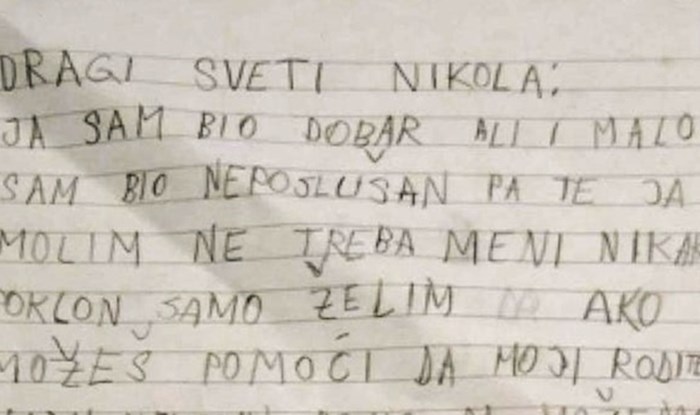 DRAGI SVETI NIKOLA:
JA SAM BIO DOBAR ALI I MALO
SAM BIO NEPOSLUŠAN PA TE JA
MOLIM NE TREBA MENI
SAMO ŽELIM AKO
MOŽEŠ POMOĆI DA MOJI